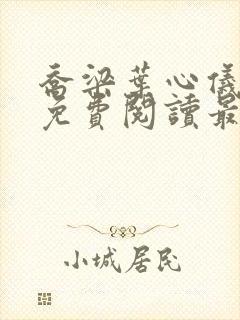 喬梁葉心儀
免費閱讀最
小城居民